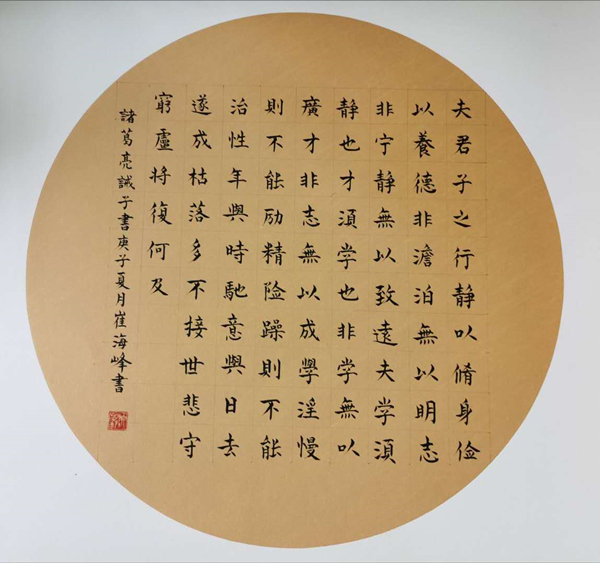 夫君子之行静以脩身俭
以養德非澹泊無以明志
非宁静無以致遠夫学湏
静也才湏学也非学無以
廣才非志無以成學淫慢
則不能励精险躁則不能
治性年與時馳意與日去
遂成枯落多不接世悲守
窮廬将復何及
諸葛亮誡子書庚子夏月崔海峰書